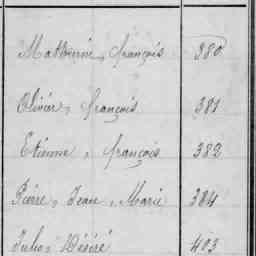 Mathurin, françois 380
Olivier, françois 381
Etienne, françois 382
Pierre, Jean, Marie 384
Jules, Désiré 403